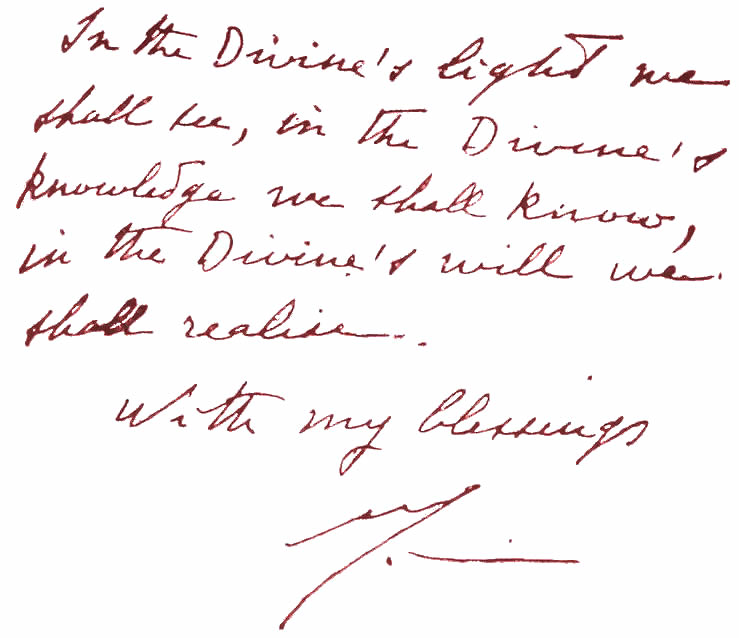 In the Divine's light we
shall see, in the Divine's
knowledge we shall know,
in the Divine's will we
shall realise.
With my blessings